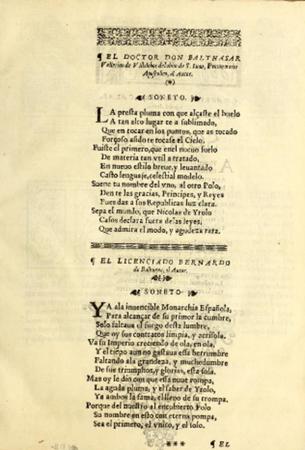 ¶ EL DOCTOR DON BALTHASAR
Apostolico, al Autor.
SONETO.
LA presta pluma con que alçaste el buelo
A tan alto lugar te a sublimado,
Que en tocar en los puntos, que as tocado
Forçoso assido te tocase el Cielo.
Fuiste el primero, que en el nueuo suelo
De materia tan vtil a tratado,
En nueuo estilo breue, y leuantado
Casto lenguaje, celestial modelo.
Suene tu nombre del vno, al otro Polo,
Den te las gracias, Principes, y Reyes
Pues das a sus Republicas luz clara.
Sepa el mundo, que Nicolas de Yrolo
Casos declara fuera de las leyes,
Que admira el modo, y agudeza rara.
¶ EL LICENCIADO BERNARDO
de Balbuena, al Autor.
SONETO
YA ala inuencible Monarchia Española,
Para alcançar de su primor la cumbre,
Solo faltaua el fuego desta lumbre,
Que oy sus contratos limpia, y acrisola.
Va su Imperio creciendo de ola, en ola,
Y el tiẽpo aun no gastaua esta herrumbre
Faltando ala grandeza, y muchedumbre
De sus triumphos, y glorias, esta sola.
Mas oy le dio con que esta nuue rompa,
La aguda pluma, y el saber de Yrolo,
Ya ambos la fama, el lleno de su trompa.
Porque del nuestro al encubierto Polo
Su nombre en esto con eterna pompa,
Sea el primero, el vnico, y el solo.
¶ EL